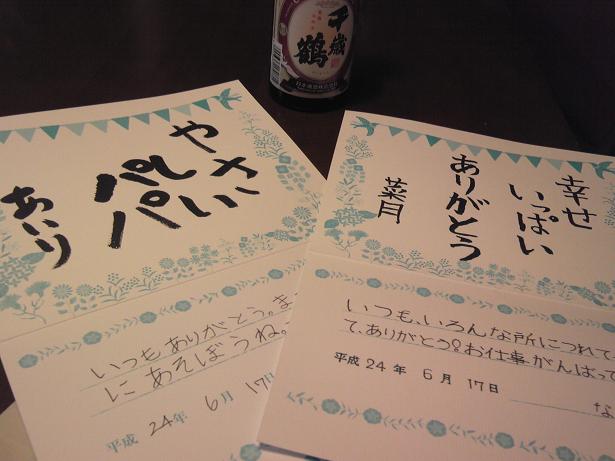 千歳鶴
日本清酒株式会社
やさしい
パパ
あいり
いつもありがとう。ま
にあそぼうね
平成 24年 6月 17日
幸せ
いっぱい
ありがとう
菜月
いつも、いろんな所につれて
て、ありがとう。お仕事がんばって
平成 24 年 6 月 17 日
な